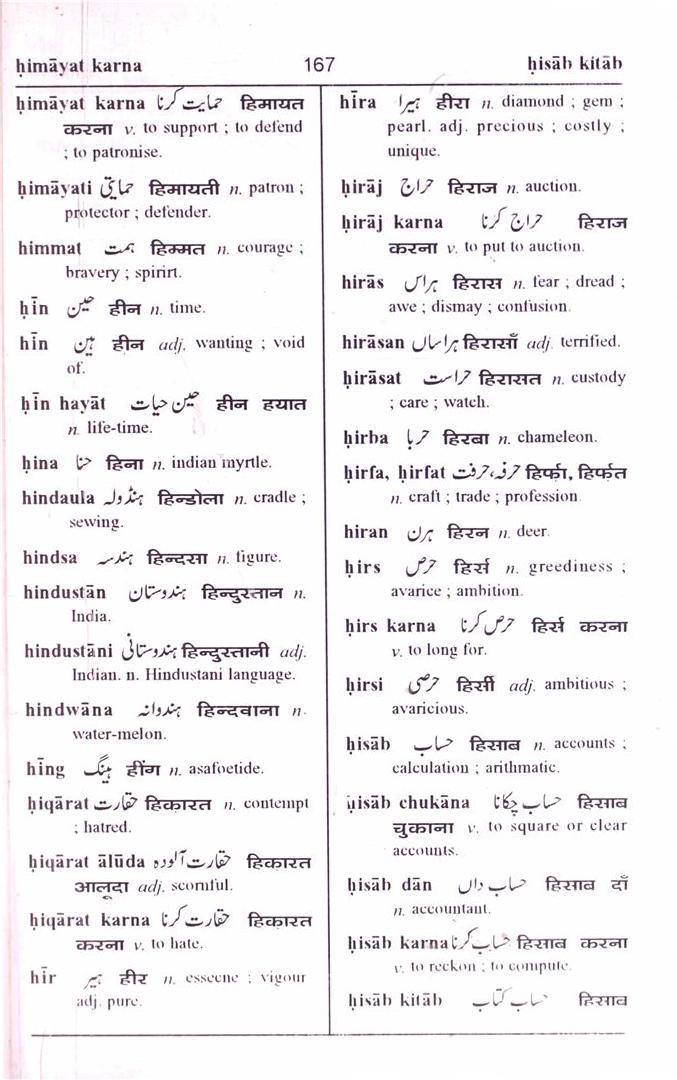 ḥimāyat karna 167 ḥisāb kitāb
ḥimāyat karna حمایت کرنا हिमायत
करना v. to support ; to defend
; to patronise.
ḥimāyati حمایتی हिमायती n. patron ;
protector ; defender.
himmat ہمت हिम्मत n. courage ;
bravery ; spirirt.
ḥīn حین हीन n. time.
hīn ہین हीन adj. wanting ; void
of.
ḥīn hayāt حین حیات हीन हयात
n. life-time.
ḥina حنا हिना n. indian myrtle.
hindaula ہنڈولہ हिन्डोला n. cradle ;
sewing.
hindsa ہندسہ हिन्दसा n. figure.
hindustān ہندوستان हिन्दुस्तान n.
India.
hindustāni ہندوستانی हिन्दुस्तानी adj.
Indian. n. Hindustani language.
hindwāna ہندوانہ हिन्दवाना n.
water-melon.
hīng ہینگ हींग n. asafoetide.
ḥiqārat حقارت हिकारत n. contempt
; hatred.
ḥiqārat ālūda حقارت آلودہ हिकारत
आलूदा adj. scornful.
ḥiqārat karna حقارت کرنا हिकारत
करना v. to hate.
hīr ہیر हीर n. essecne ; vigour
adj. pure.
hīra ہیرا हीरा n. diamond ; gem ;
pearl. adj. precious ; costly ;
unique.
ḥirāj حراج हिराज n. auction.
ḥirāj karna حراج کرنا हिराज
करना v. to put to auction.
hirās ہراس हिरास n. fear ; dread ;
awe ; dismay ; confusion.
hirāsan ہراساں हिरासाँ adj. terrified.
ḥirāsat حراست हिरासत n. custody
; care ; watch.
ḥirba حربا हिरबा n. chameleon.
ḥirfa, ḥirfat حرفہ، حرفت हिर्फा, हिर्फत
n. craft ; trade ; profession.
hiran ہرن हिरन n. deer.
ḥirs حرص हिर्स n. greediness ;
avarice ; ambition.
ḥirs karna حرص کرنا हिर्स करना
v. to long for.
ḥirsi حرصی हिर्सी adj. ambitious ;
avaricious.
ḥisāb حساب हिसाब n. accounts ;
calculation ; arithmatic.
ḥisāb chukāna حساب چکانا हिसाब
चुकाना v. to square or clear
accounts.
ḥisāb dān حساب داں हिसाब दाँ
n. accountant.
ḥisāb karna حساب کرنا हिसाब करना
v. to reckon ; to compute.
ḥisāb kitāb حساب کتاب हिसाब